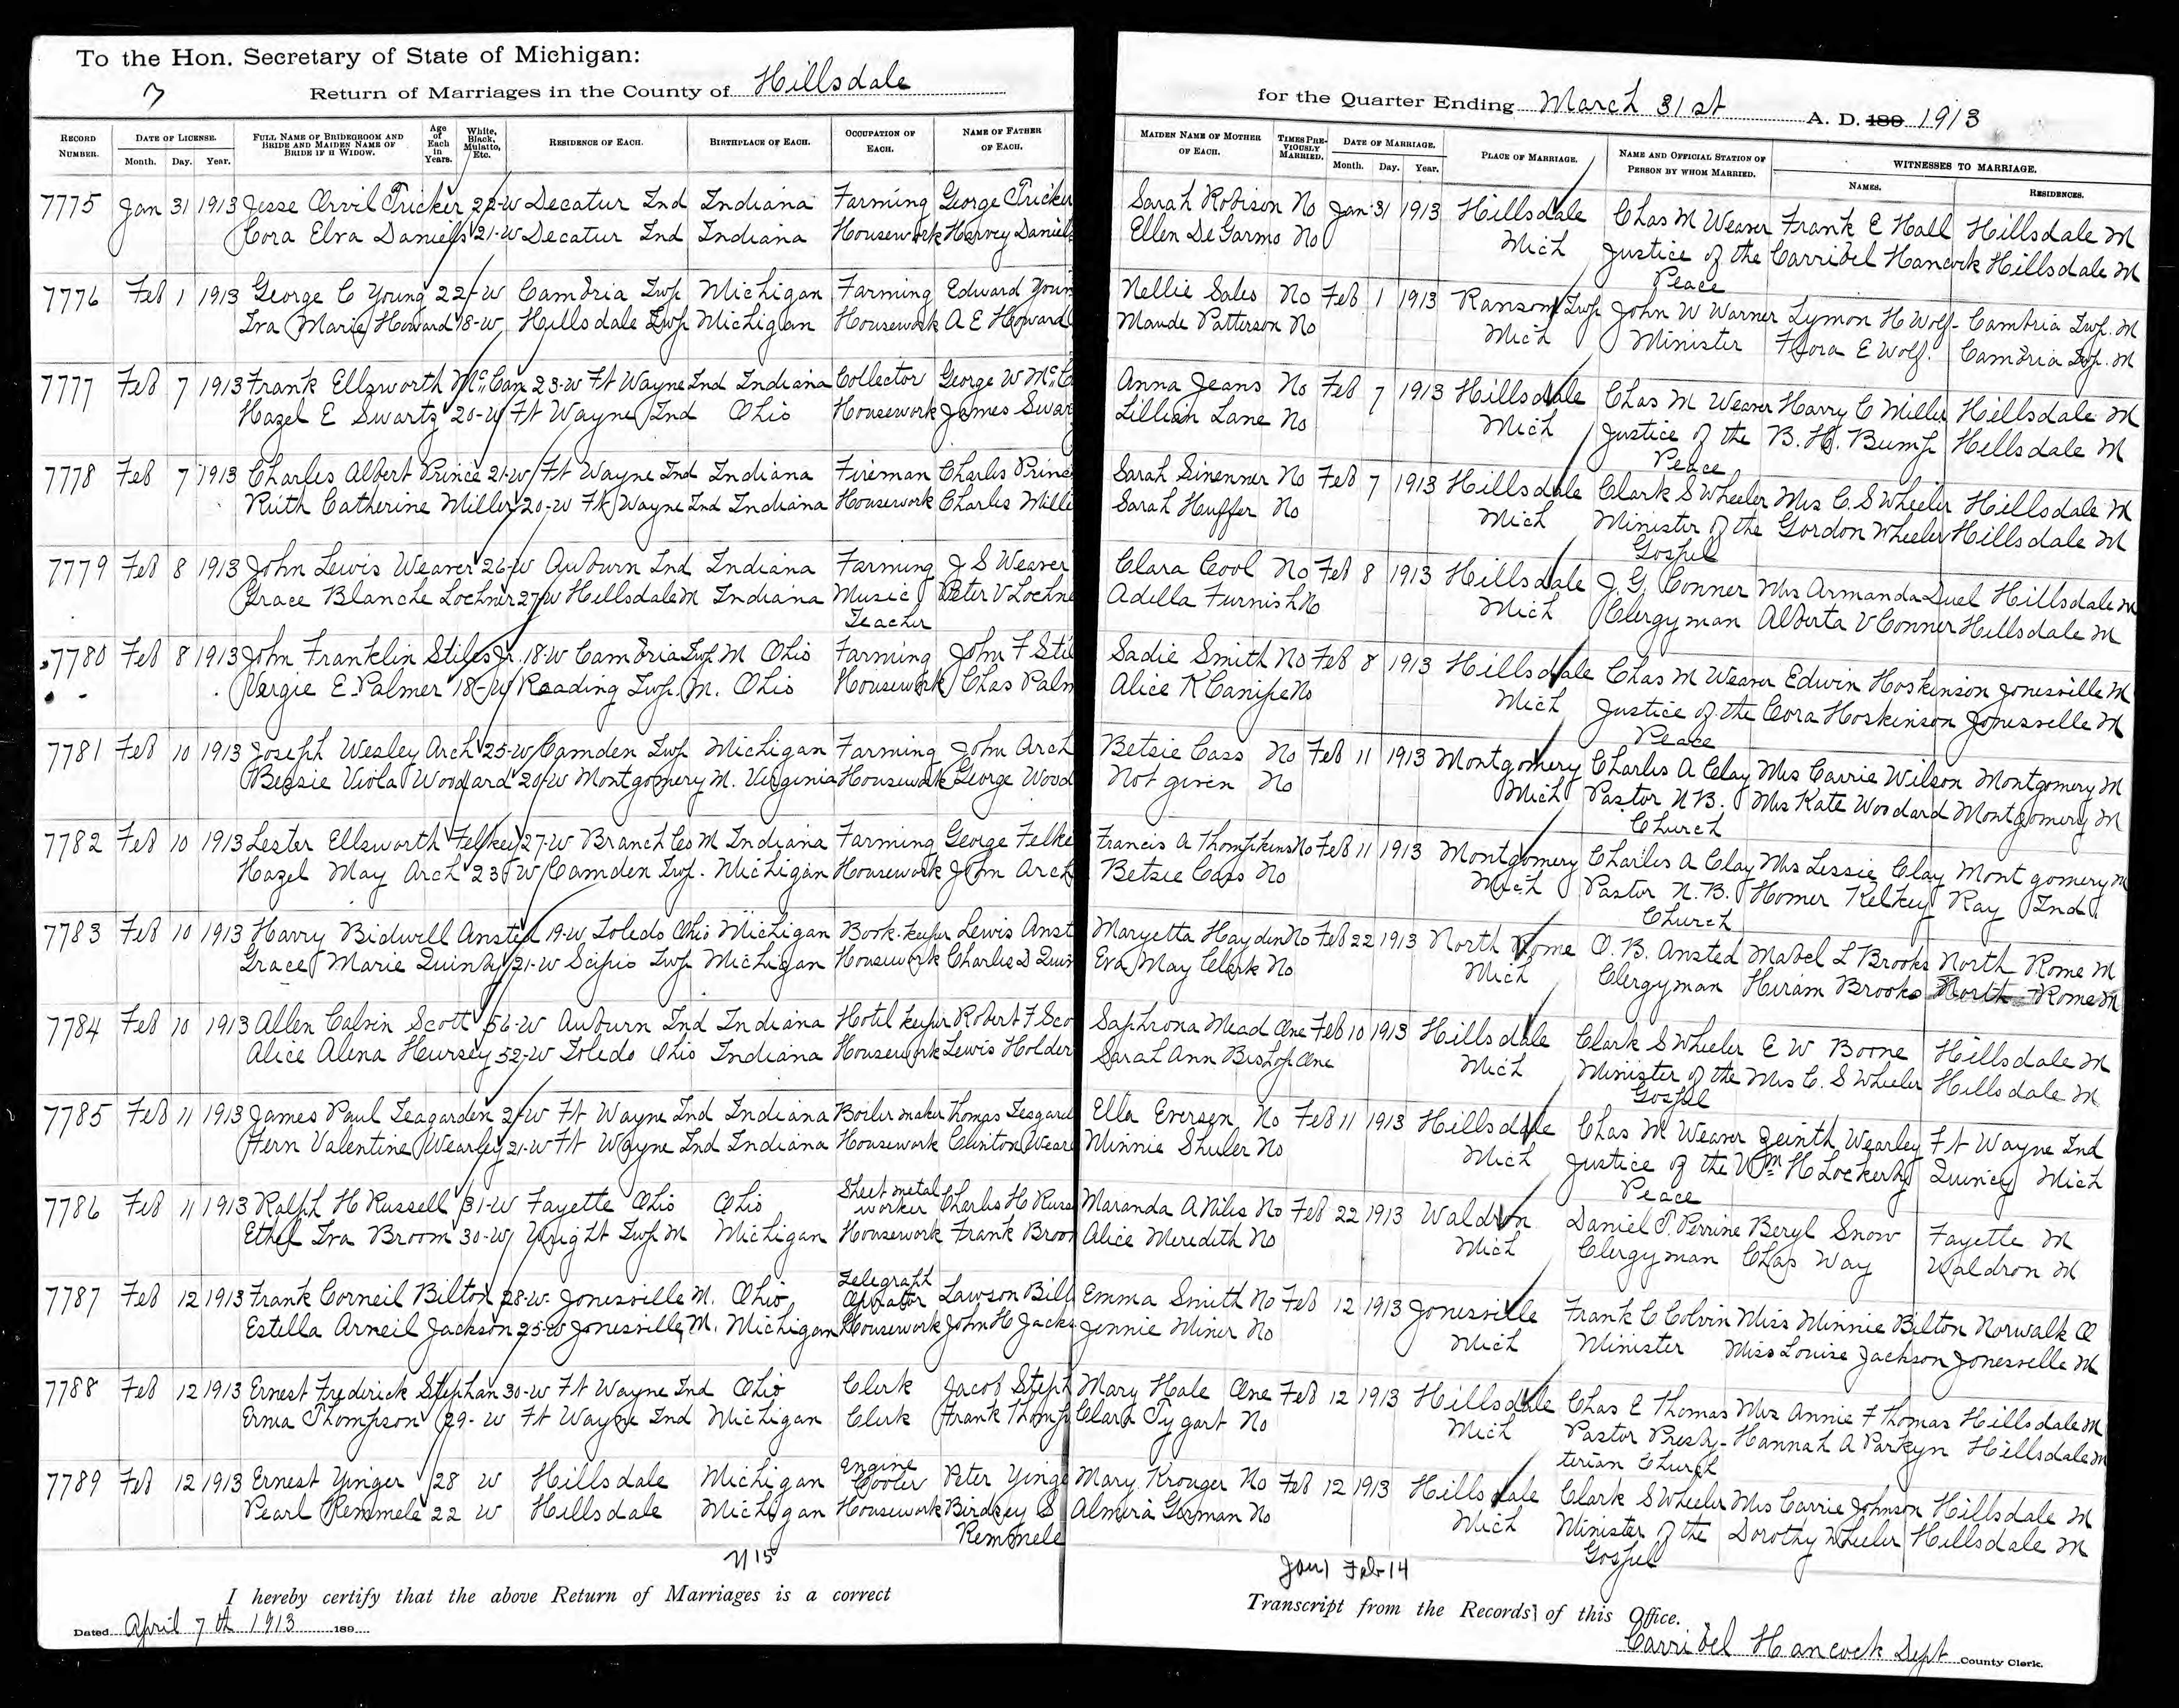 To the Hon. Secretary of State of Michigan:
7 Return of Marriages in the County of Hillsdale for the Quarter Ending March 31st A. D. 189 1913
RECORD NUMBER. DATE OF LICENSE. Month. Day. Year. FULL NAME OF BRIDEGROOM AND BRIDE AND MAIDEN NAME OF BRIDE IF A WIDOW. Age of Each in Years. White, Black, Mulatto, Etc. RESIDENCE OF EACH. BIRTHPLACE OF EACH. OCCUPATION OF EACH. NAME OF FATHER OF EACH. MAIDEN NAME OF MOTHER OF EACH. TIMES PREVIOUSLY MARRIED. DATE OF MARRIAGE. Month. Day. Year. PLACE OF MARRIAGE. NAME AND OFFICIAL STATION OF PERSON BY WHOM MARRIED. WITNESSES TO MARRIAGE. NAMES. RESIDENCES.
7775 Jan 31 1913 Jesse Orvil Tricker 22-W Decatur Ind Indiana Farming George Tricker Sarah Robison No Jan 31 1913 Hillsdale Chas M Weaver Frank E Hall Hillsdale M
Cora Elva Daniels 21-W Decatur Ind Indiana Housework Harvey Daniels Ellen DeGarmo No Mich Justice of the Carribel Hancock Hillsdale M
Peace
7776 Feb 1 1913 George C Young 22-W Cambria Twp Michigan Farming Edward Youn Nellie Sales No Feb 1 1913 Ransom Twp John W Warner Lymon H Wolf Cambria Twp. M
Iva Marie Howard 18-W Hillsdale Twp Michigan Housework A E Howard Maude Patterson No Mich Minister Flora E Wolf. Cambria Twp. M
7777 Feb 7 1913 Frank Ellsworth McCan 23-W Ft Wayne Ind Indiana Collector George W McC Anna Jeans No Feb 7 1913 Hillsdale Chas M Weaver Harry C Miller Hillsdale M
Hazel E Swartz 20-W Ft Wayne Ind Ohio Housework James Swar Lillian Lane No Mich Justice of the B. H. Bump Hillsdale M
Peace
7778 Feb 7 1913 Charles Albert Prince 21-W Ft Wayne Ind Indiana Fireman Charles Prince Sarah Sinenner No Feb 7 1913 Hillsdale Clark S Wheeler Mrs C. S Wheeler Hillsdale M
Ruth Catherine Miller 20-W Ft Wayne Ind Indiana Housework Charles Mille Sarah Huffer No Mich Minister of the Gordon Wheeler Hillsdale M
Gospel
7779 Feb 8 1913 John Lewis Weaver 26-W Auburn Ind Indiana Farming J S Weaver Clara Cool No Feb 8 1913 Hillsdale J. G. Conner Mrs Armanda Duel Hillsdale M
Grace Blanche Lochner 27-W Hillsdale M Indiana Music Peter V Lochne Adella Furnish No Mich Clergyman Alberta V Conner Hillsdale M
Teacher
7780 Feb 8 1913 John Franklin Stiles Jr. 18-W Cambria Twp. M Ohio Farming John F Sti Sadie Smith No Feb 8 1913 Hillsdale Chas M Weaver Edwin Hoskinson Jonesville M
Vergie E. Palmer 18-W Reading Twp. M. Ohio Housework Chas Palm Alice K Canipe No Mich Justice of the Cora Hoskinson Jonesville M
Peace
7781 Feb 10 1913 Joseph Wesley Arch 25-W Camden Twp Michigan Farming John Arch Betsie Cass No Feb 11 1913 Montgomery Charles A Clay Mrs Carrie Wilson Montgomery M
Bessie Viola Woodard 20-W Montgomery M. Virginia Housework George Wood Not given No Mich Pastor U B. Mrs Kate Woodard Montgomery M
Church
7782 Feb 10 1913 Lester Ellsworth Felkey 27-W Branch Co M Indiana Farming George Felke Francis A Thompkins No Feb 11 1913 Montgomery Charles A Clay Mrs Lessie Clay Montgomery M
Hazel May Arch 23-W Camden Twp. Michigan Housework John Arch Betsie Cass No Mich Pastor U. B. Homer Kelkey Ray Ind
Church
7783 Feb 10 1913 Harry Bidwell Ansted 19-W Toledo Ohio Michigan Book-keeper Lewis Anst Maryetta Hayden No Feb 22 1913 North Rome O. B. Ansted Mabel L Brooks North Rome M
Grace Marie Quinby 21-W Scipio Twp Michigan Housework Charles D Quin Eva May Clark No Mich Clergyman Hiram Brooks North Rome M
7784 Feb 10 1913 Allen Calvin Scott 56-W Auburn Ind Indiana Hotel keeper Robert F Sco Saphrona Mead One Feb 10 1913 Hillsdale Clark S Wheeler E W Boone Hillsdale M
Alice Alena Hursey 52-W Toledo Ohio Indiana Housework Lewis Holder Sarah Ann Bishop One Mich Minister of the Mrs C. S Wheeler Hillsdale M
Gospel
7785 Feb 11 1913 James Paul Teagarden 21-W Ft Wayne Ind Indiana Boiler maker Thomas Teagard Ella Eversen No Feb 11 1913 Hillsdale Chas M Weaver Zeinth Wearley Ft Wayne Ind
Fern Valentine Wearley 21-W Ft Wayne Ind Indiana Housework Clinton Wear Minnie Shuler No Mich Justice of the Wm H Lockerby Quincy Mich
Peace
7786 Feb 11 1913 Ralph H Russell 31-W Fayette Ohio Ohio Sheet metal worker Charles H Russ Maranda A Niles No Feb 22 1913 Waldron Daniel P. Perrine Beryl Snow Fayette M
Ethel Iva Broom 30-W Wright Twp M Michigan Housework Frank Broom Alice Meredith No Mich Clergyman Chas Way Waldron M
7787 Feb 12 1913 Frank Corneil Bilton 28-W Jonesville M. Ohio Telegraph Operator Lawson Bilt Emma Smith No Feb 12 1913 Jonesville Frank C Colvin Miss Minnie Bilton Norwalk O
Estella Arneil Jackson 25-W Jonesville, M. Michigan Housework John H Jacks Jennie Miner No Mich Minister Miss Louise Jackson Jonesville M
7788 Feb 12 1913 Ernest Frederick Stephan 30-W Ft Wayne Ind Ohio Clerk Jacob Steph Mary Hale One Feb 12 1913 Hillsdale Chas E Thomas Mrs Annie F Thomas Hillsdale M
Erma Thompson 29-W Ft Wayne Ind Michigan Clerk Frank Thomp Clara Tygart No Mich Pastor Presby- Hannah A Parkyn Hillsdale M
terian Church
7789 Feb 12 1913 Ernest Yinger 28 W Hillsdale Michigan Engine Cooler Peter Yinge Mary Krouger No Feb 12 1913 Hillsdale Clark S Wheeler Mrs Carrie Johnson Hillsdale M
Pearl Remmele 22 W Hillsdale Michigan Housework Birdsey S Almera Gorman No Mich Minister of the Dorothy Wheeler Hillsdale M
Remmele Gospel
N15 Jan 1 Feb-14
I hereby certify that the above Return of Marriages is a correct Transcript from the Records of this Office.
Dated April 7th 1913 189 Carribel Hancock Dept County Clerk.